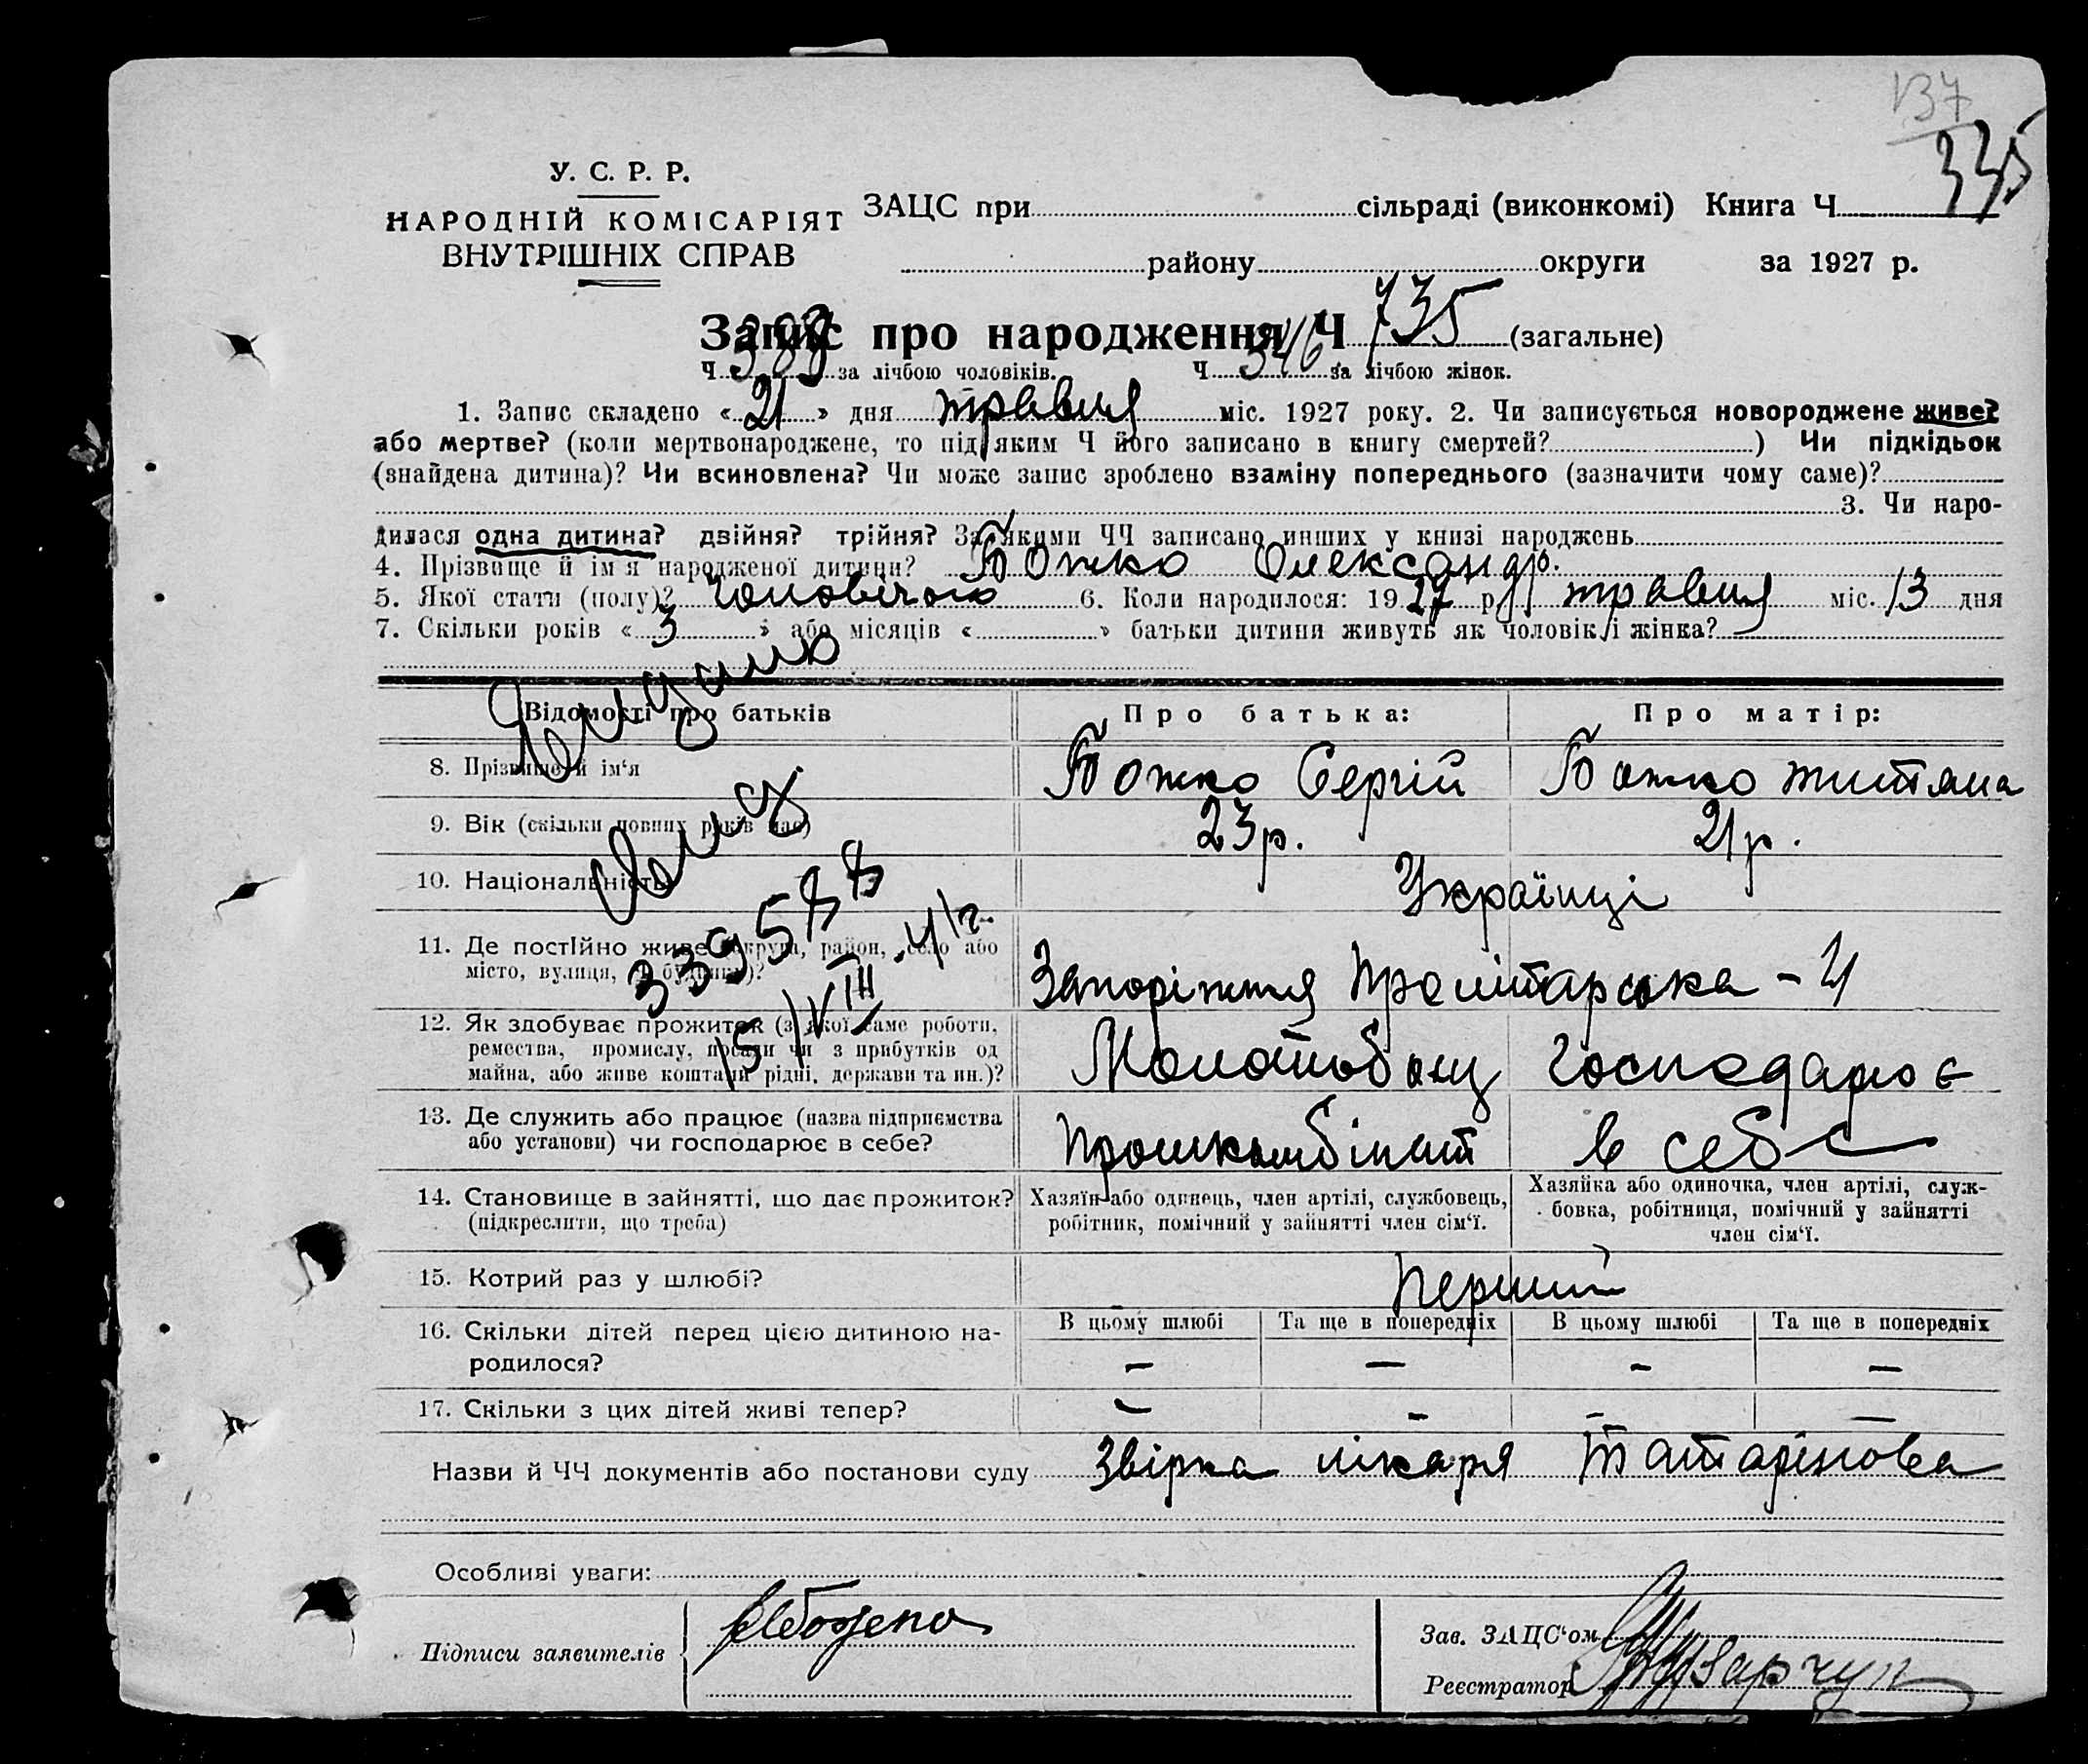 137
335
У. С. Р. Р.
НАРОДНІЙ КОМІСАРІЯТ
ВНУТРІШНІХ СПРАВ
ЗАЦС при сільраді (виконкомі) Книга Ч
району округи за 1927 р.
Запис про народження Ч 735 (загальне)
Ч за лічбою чоловіків. Ч 346 за лічбою жінок.
1. Запис складено « 21 » дня травня міс. 1927 року. 2. Чи записується новороджене живе?
або мертве? (коли мертвонароджене, то під яким Ч його записано в книгу смертей? ) Чи підкідьок
(знайдена дитина)? Чи всиновлена? Чи може запис зроблено взаміну попереднього (зазначити чому саме)?
3. Чи наро-
дилася одна дитина? двійня? трійня? За якими ЧЧ записано инших у книзі народжень
4. Прізвище й ім'я народженої дитини? Божко Олександр.
5. Якої стати (полу)? чоловічого 6. Коли народилося: 1927 р. травня міс. 13 дня
7. Скільки років « 3 » або місяців « » батьки дитини живуть як чоловік і жінка?
Відомості про батьків Про батька: Про матір:
8. Прізвище й ім'я Божко Сергій Божко Титяна
9. Вік (скільки повних років має) 23 р. 21 р.
10. Національність Українці
11. Де постійно живе (округа, район, село або
місто, вулиця, Ч будинка)? Запоріжжя Пролітарська - 4
339588
15/VIII.41 г.
12. Як здобуває прожиток (з якої саме роботи,
ремества, промислу, посади чи з прибутків од
майна, або живе коштами рідні, держави та ин.)? Молотобоєц Господарює
13. Де служить або працює (назва підприємства
або установи) чи господарює в себе? Промкомбінат в себе
14. Становище в зайнятті, що дає прожиток?
(підкреслити, що треба)
Хазяїн або одинець, член артілі, службовець,
робітник, помічний у зайнятті член сім'ї.
Хазяйка або одиночка, член артілі, служ-
бовка, робітниця, помічний у зайнятті
член сім'ї.
15. Котрий раз у шлюбі? Перший
16. Скільки дітей перед цією дитиною на-
родилося?
В цьому шлюбі Та ще в попередніх В цьому шлюбі Та ще в попередніх
– – – –
17. Скільки з цих дітей живі тепер? – – – –
Назви й ЧЧ документів або постанови суду Звірка лікаря Татарінова
Особливі уваги:
Підписи заявителів
Зав. ЗАЦС'ом
Реєстратор